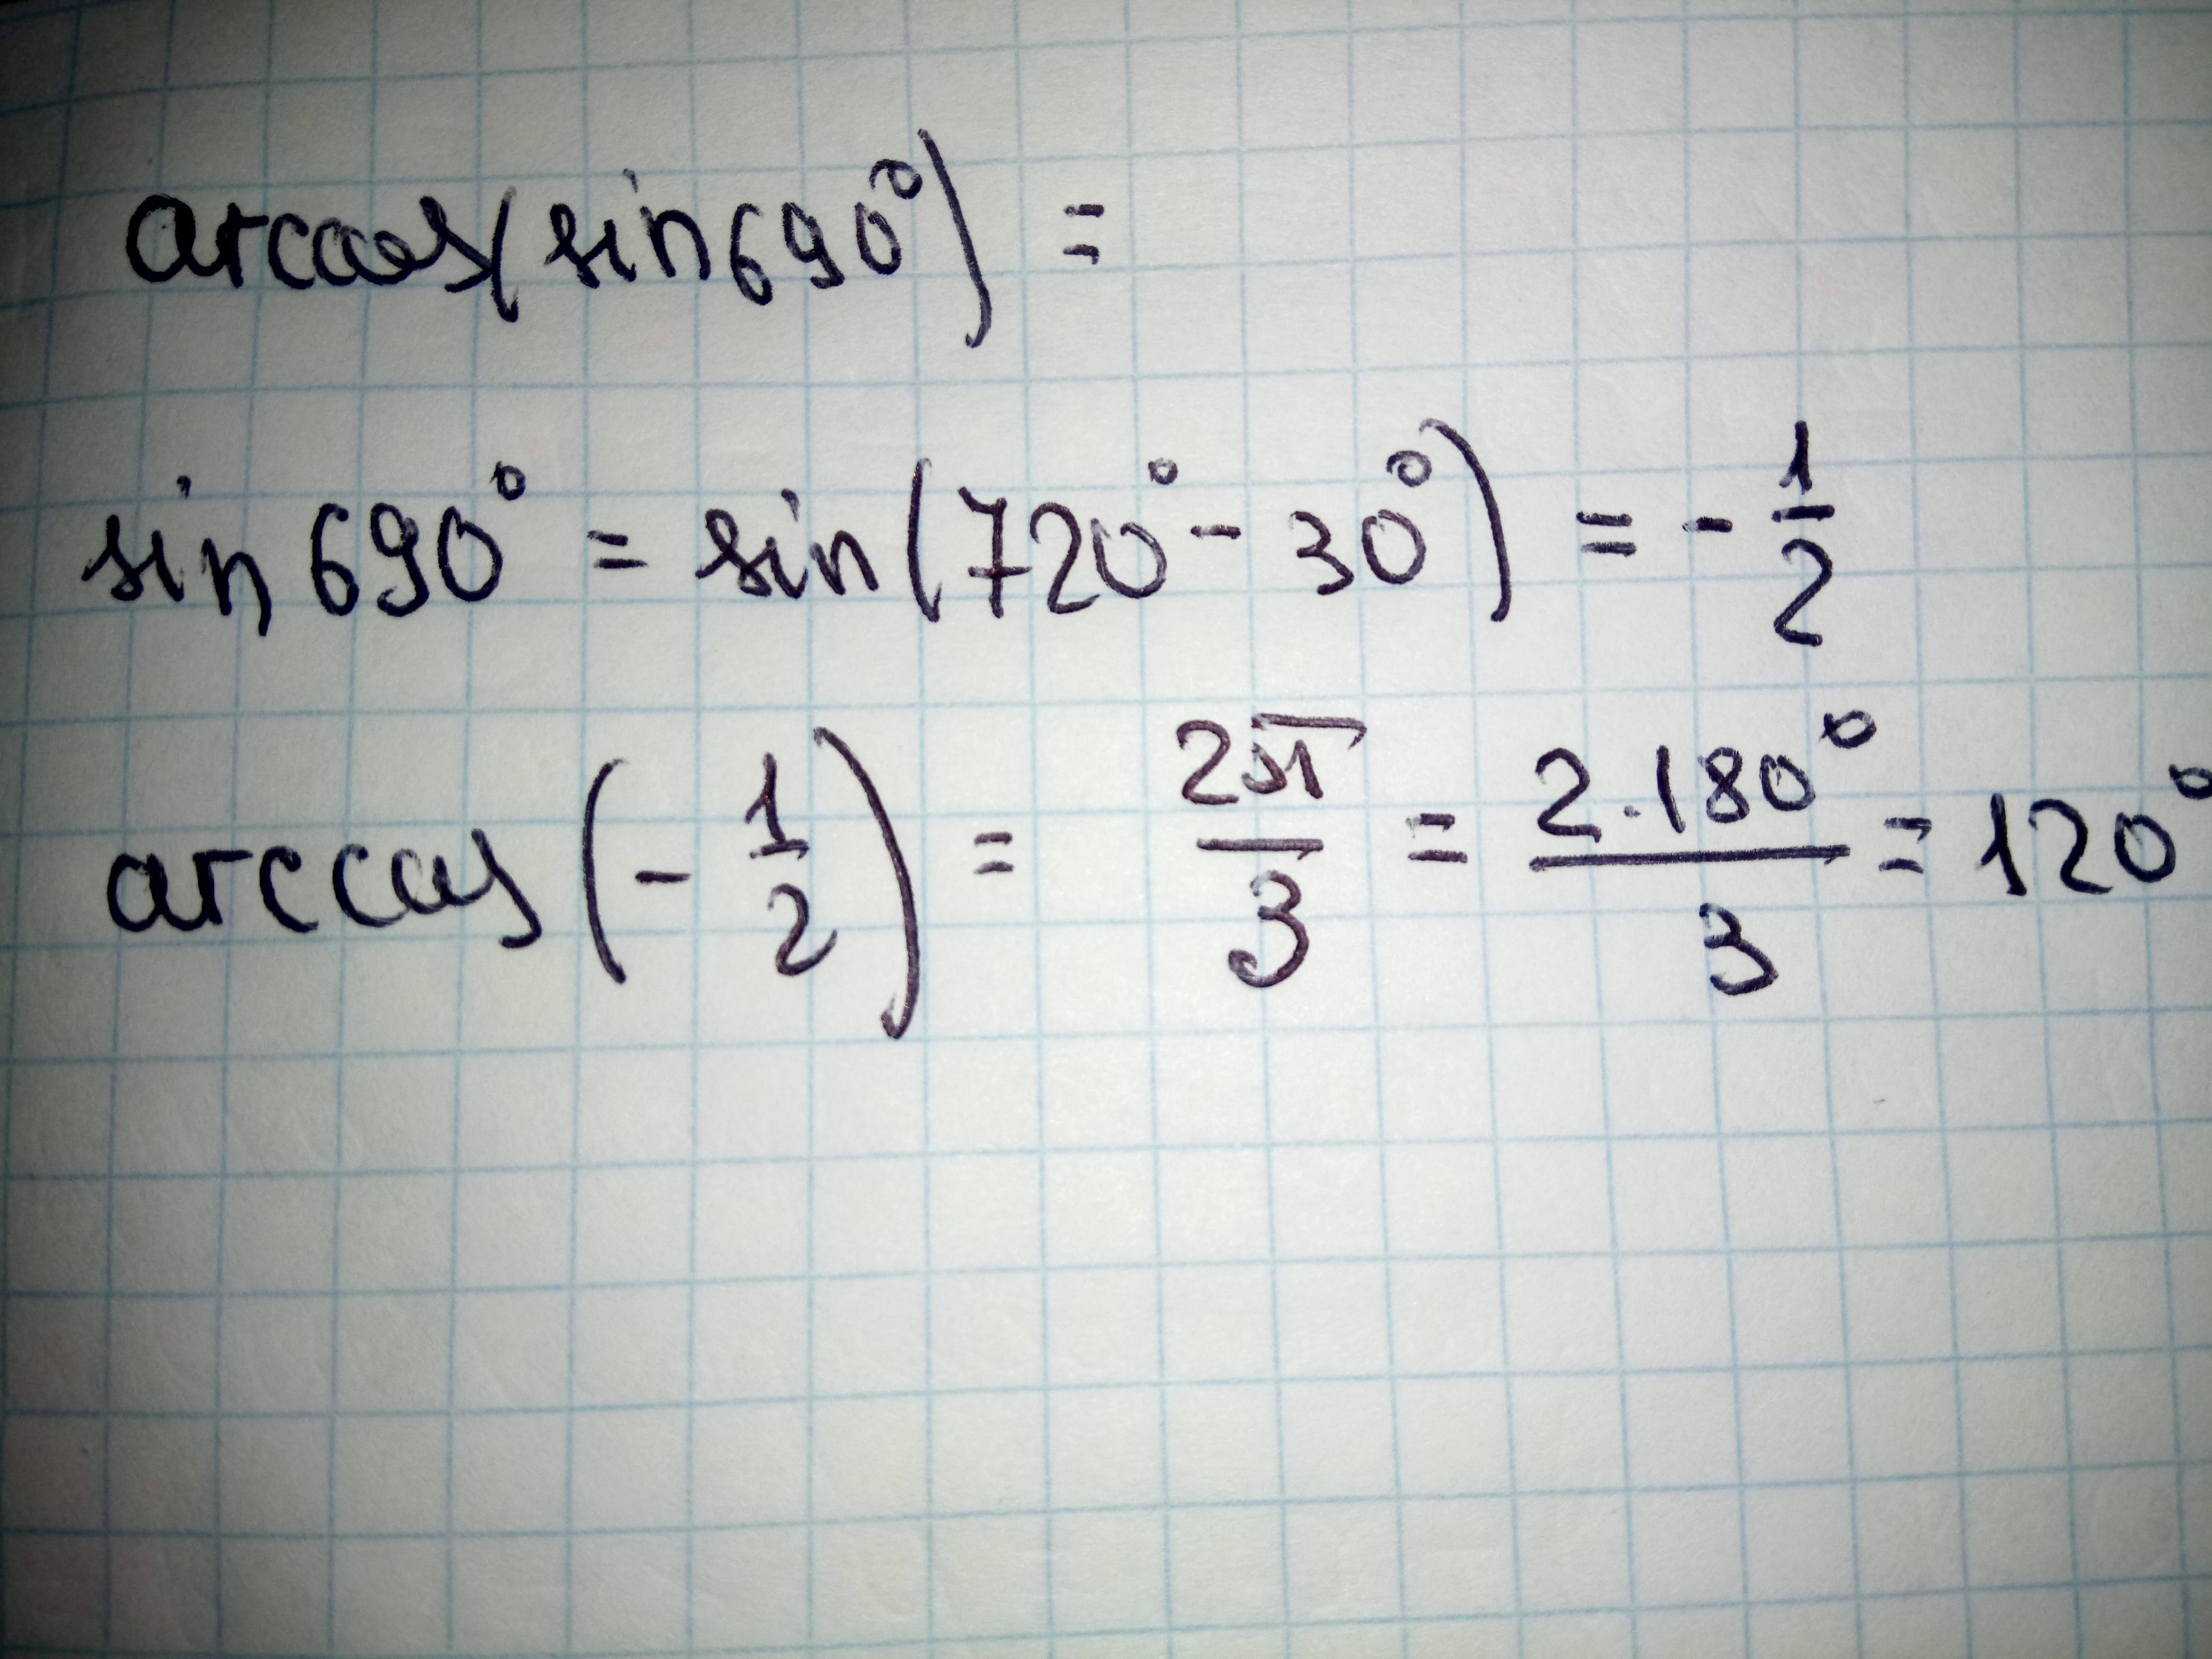 arccos(sin690°) =
sin 690° = sin(720° - 30°) = - 1/2
arccos(- 1/2) = 2π/3 = 2·180°/3 = 120°